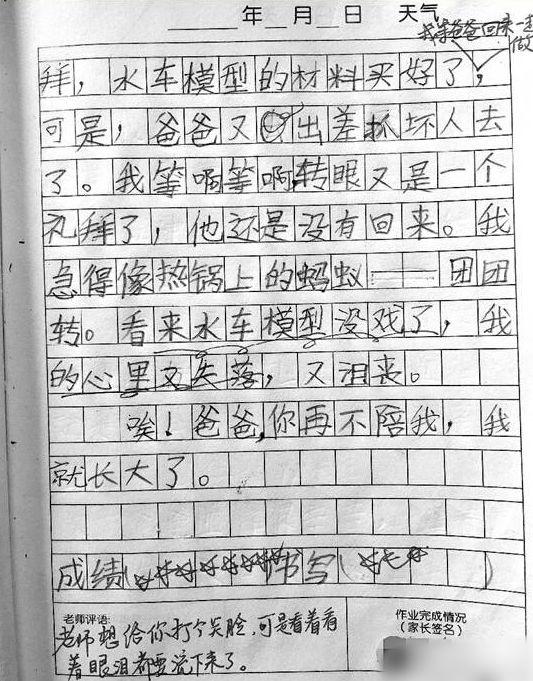 年 月 日 天气
我等爸爸回来一起做
拜，水车模型的材料买好了，
可是，爸爸又出差抓坏人去
了。我等啊等啊，转眼又是一个
礼拜了，他还是没有回来。我
急得像热锅上的蚂蚁——团团
转。看来水车模型没戏了，我
的心里又失落，又泪丧。
唉！爸爸，你再不陪我，我
就长大了。
成绩（☆☆☆☆☆☆☆ 书写（☆☆☆ ）
老师评语：
老师想给你打个笑脸，可是看着看
着眼泪都要流下来了。
作业完成情况
（家长签名）